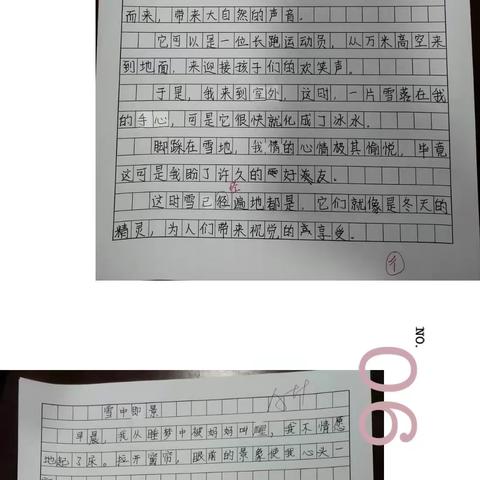 而来，带来大自然的声音。
它可以是一位长跑运动员，从万米高空来
到地面，来迎接孩子们的欢笑声。
于是，我来到室外，这时，一片雪落在我
的手心，可是它很快就化成了冰水。
脚踩在雪地，我的心情极其愉悦，毕竟
这可是我盼了许久的好友。
这时雪已经遍地都是，它们就像是冬天的
精灵，为人们带来视觉的享受。
NO.
06
雪中即景
早晨，我从睡梦中被妈妈叫醒，我不情愿
地起了床。拉开窗帘，眼前的景象使我心头一